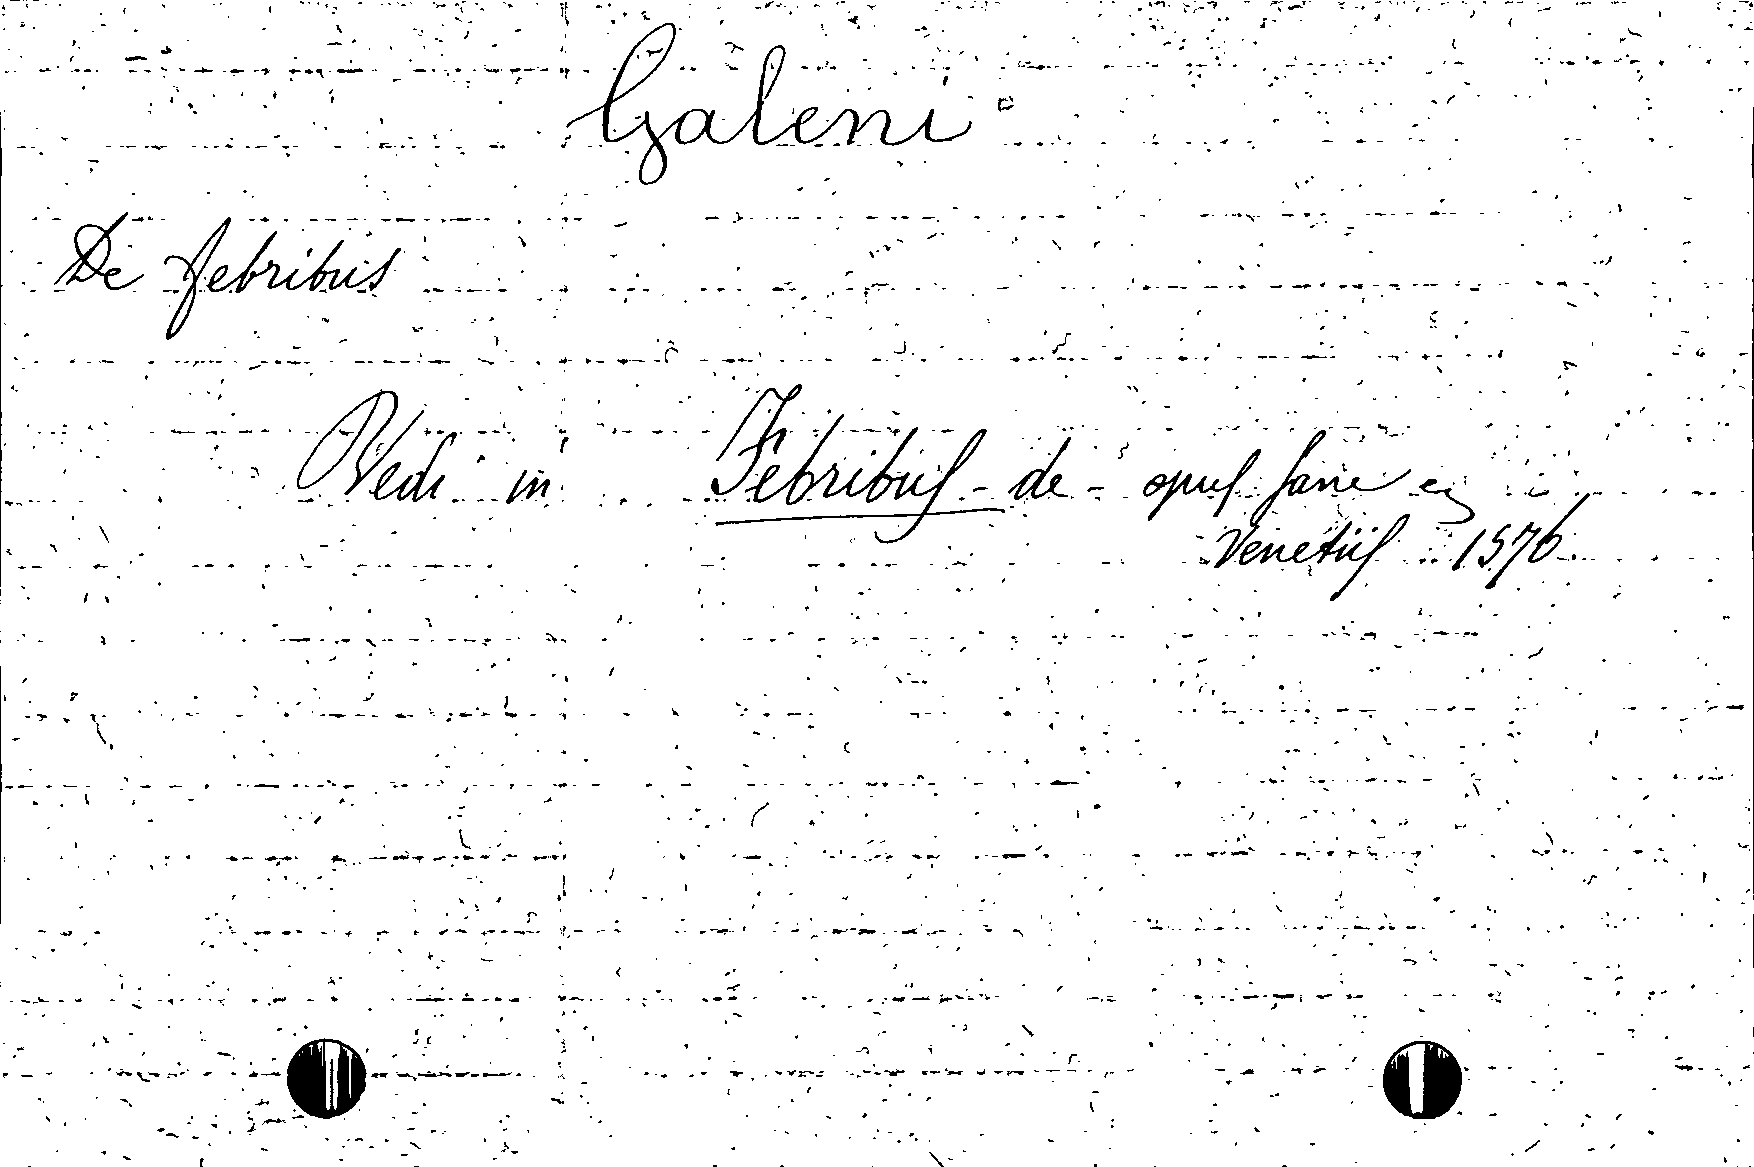 Galeni
De febribus
Vedi in Febribus - de - opus sane eg
Venetiis 1576